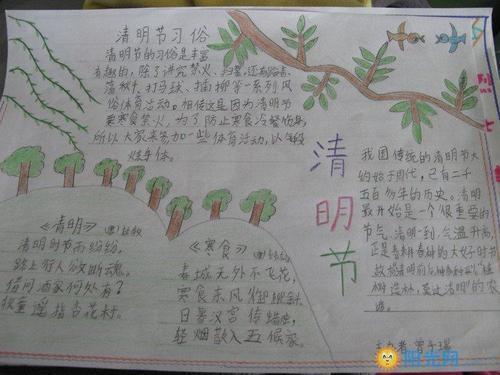 清明节习俗
清明节的习俗是丰富
有趣的,除了讲究禁火、扫墓,还有踏青、
荡秋千、打马球、插柳等一系列风
俗体育活动。相传这是因为清明节
要寒食禁火,为了防止寒食冷餐伤身,
所以大家来参加一些体育活动,以锻
炼身体。
清
明
节
我国传统的清明节大
约始于周代,已有二千
五百多年的历史。清明
最开始是一个很重要的
节气,清明一到,气温升高,
正是春耕春种的大好时节
故有清明前后
树造林,莫过清明的农
谚。
《清明》
清明时节雨纷纷,
路上行人欲断魂。
借问酒家何处有?
牧童遥指杏花村。
《寒食》
春城无处不飞花,
寒食东风御柳斜。
日暮汉宫传蜡烛,
轻烟散入五侯家。
主办者
阳光网